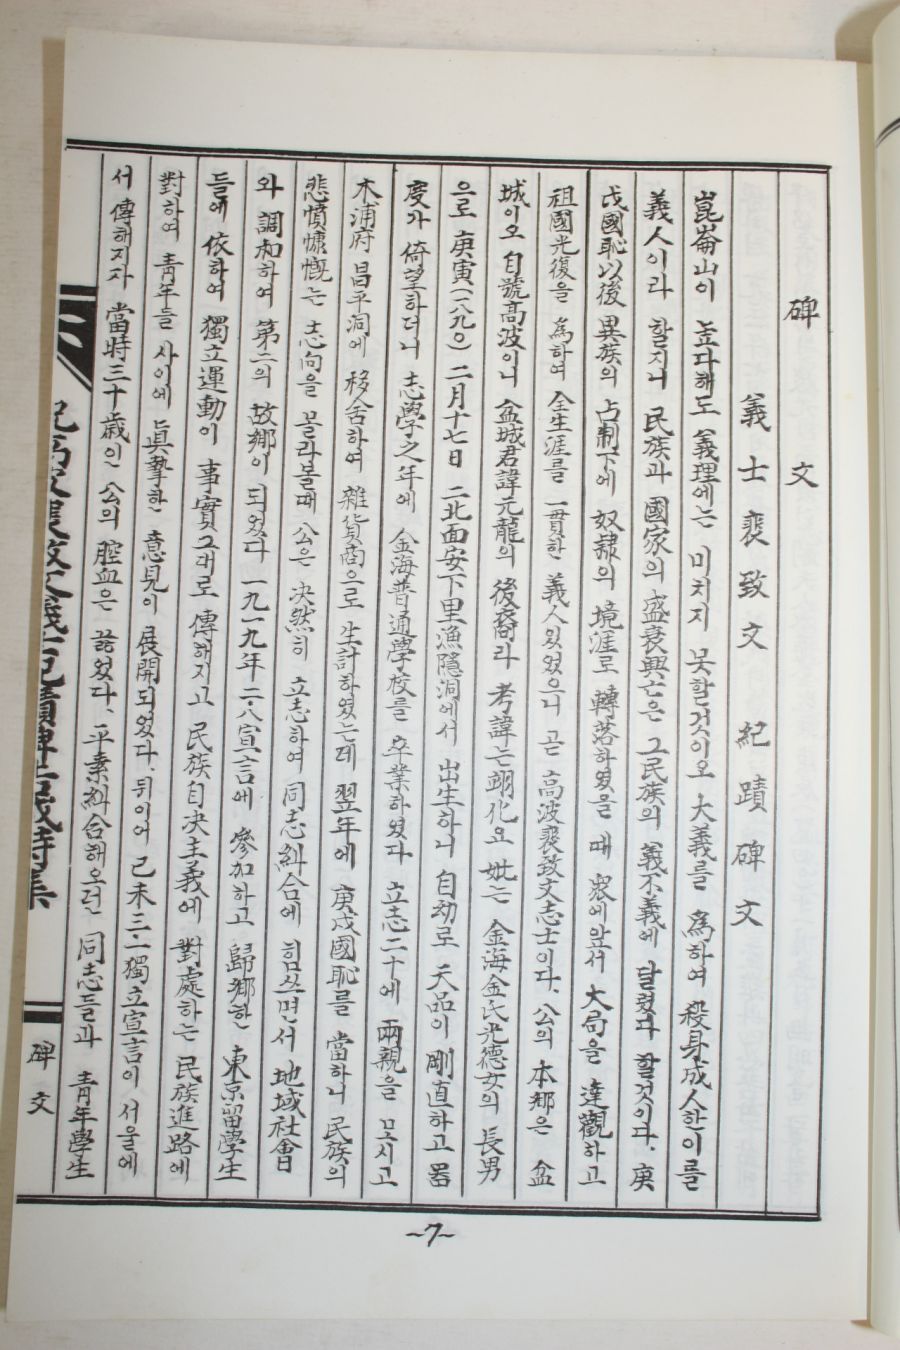 碑 文
義士裵致文 紀蹟碑文
崑崙山이 높다해도 義理에는 미치지 못할것이오 大義를 爲하여 殺身成人한이를
義人이라 할지니 民族과 國家의 盛衰興亡은 그民族의 義不義에 달렸다 할것이다. 庚
戌國恥以後 異族의 占制下에 奴隸의 境涯로 轉落하였을 때 衆에앞서 大局을 達觀하고
祖國光復을 爲하여 全生涯를 一貫한 義人있었으니 곧 高波裵致文志士이다. 公의 本鄕은 盆
城이오 自號高波이니 盆城君諱元龍의 後裔라 考諱는 翊化요 妣는 金海金氏光德女의 長男
으로 庚寅(一八九〇) 二月十七日 二北面安下里漁隱洞에서 出生하니 自幼로 天品이 剛直하고 器
度가 倚望하더니 志學之年에 金海普通學校를 卒業하였다 立志二十에 兩親을 모시고
木浦府 昌平洞에 移舍하여 雜貨商으로 生計하였는데 翌年에 庚戌國恥를 當하니 民族의
悲憤慷慨는 志向을 몰라볼때 公은 决然히 立志하여 同志糾合에 힘쓰면서 地域社會
와 調和하여 第二의 故鄕이 되었다 一九一九年二·八宣言에 參加하고 歸鄕한 東京留學生
들에 依하여 獨立運動이 事實그대로 傳해지고 民族自决主義에 對處하는 民族進路에
對하여 靑年들 사이에 眞摯한 意見이 展開되었다. 뒤이어 己未三·一獨立宣言이 서울에
서 傳해지자 當時三十歲인 公의 腔血은 끓었다. 平素糾合해오던 同志들과 靑年學生
碑文
~7~